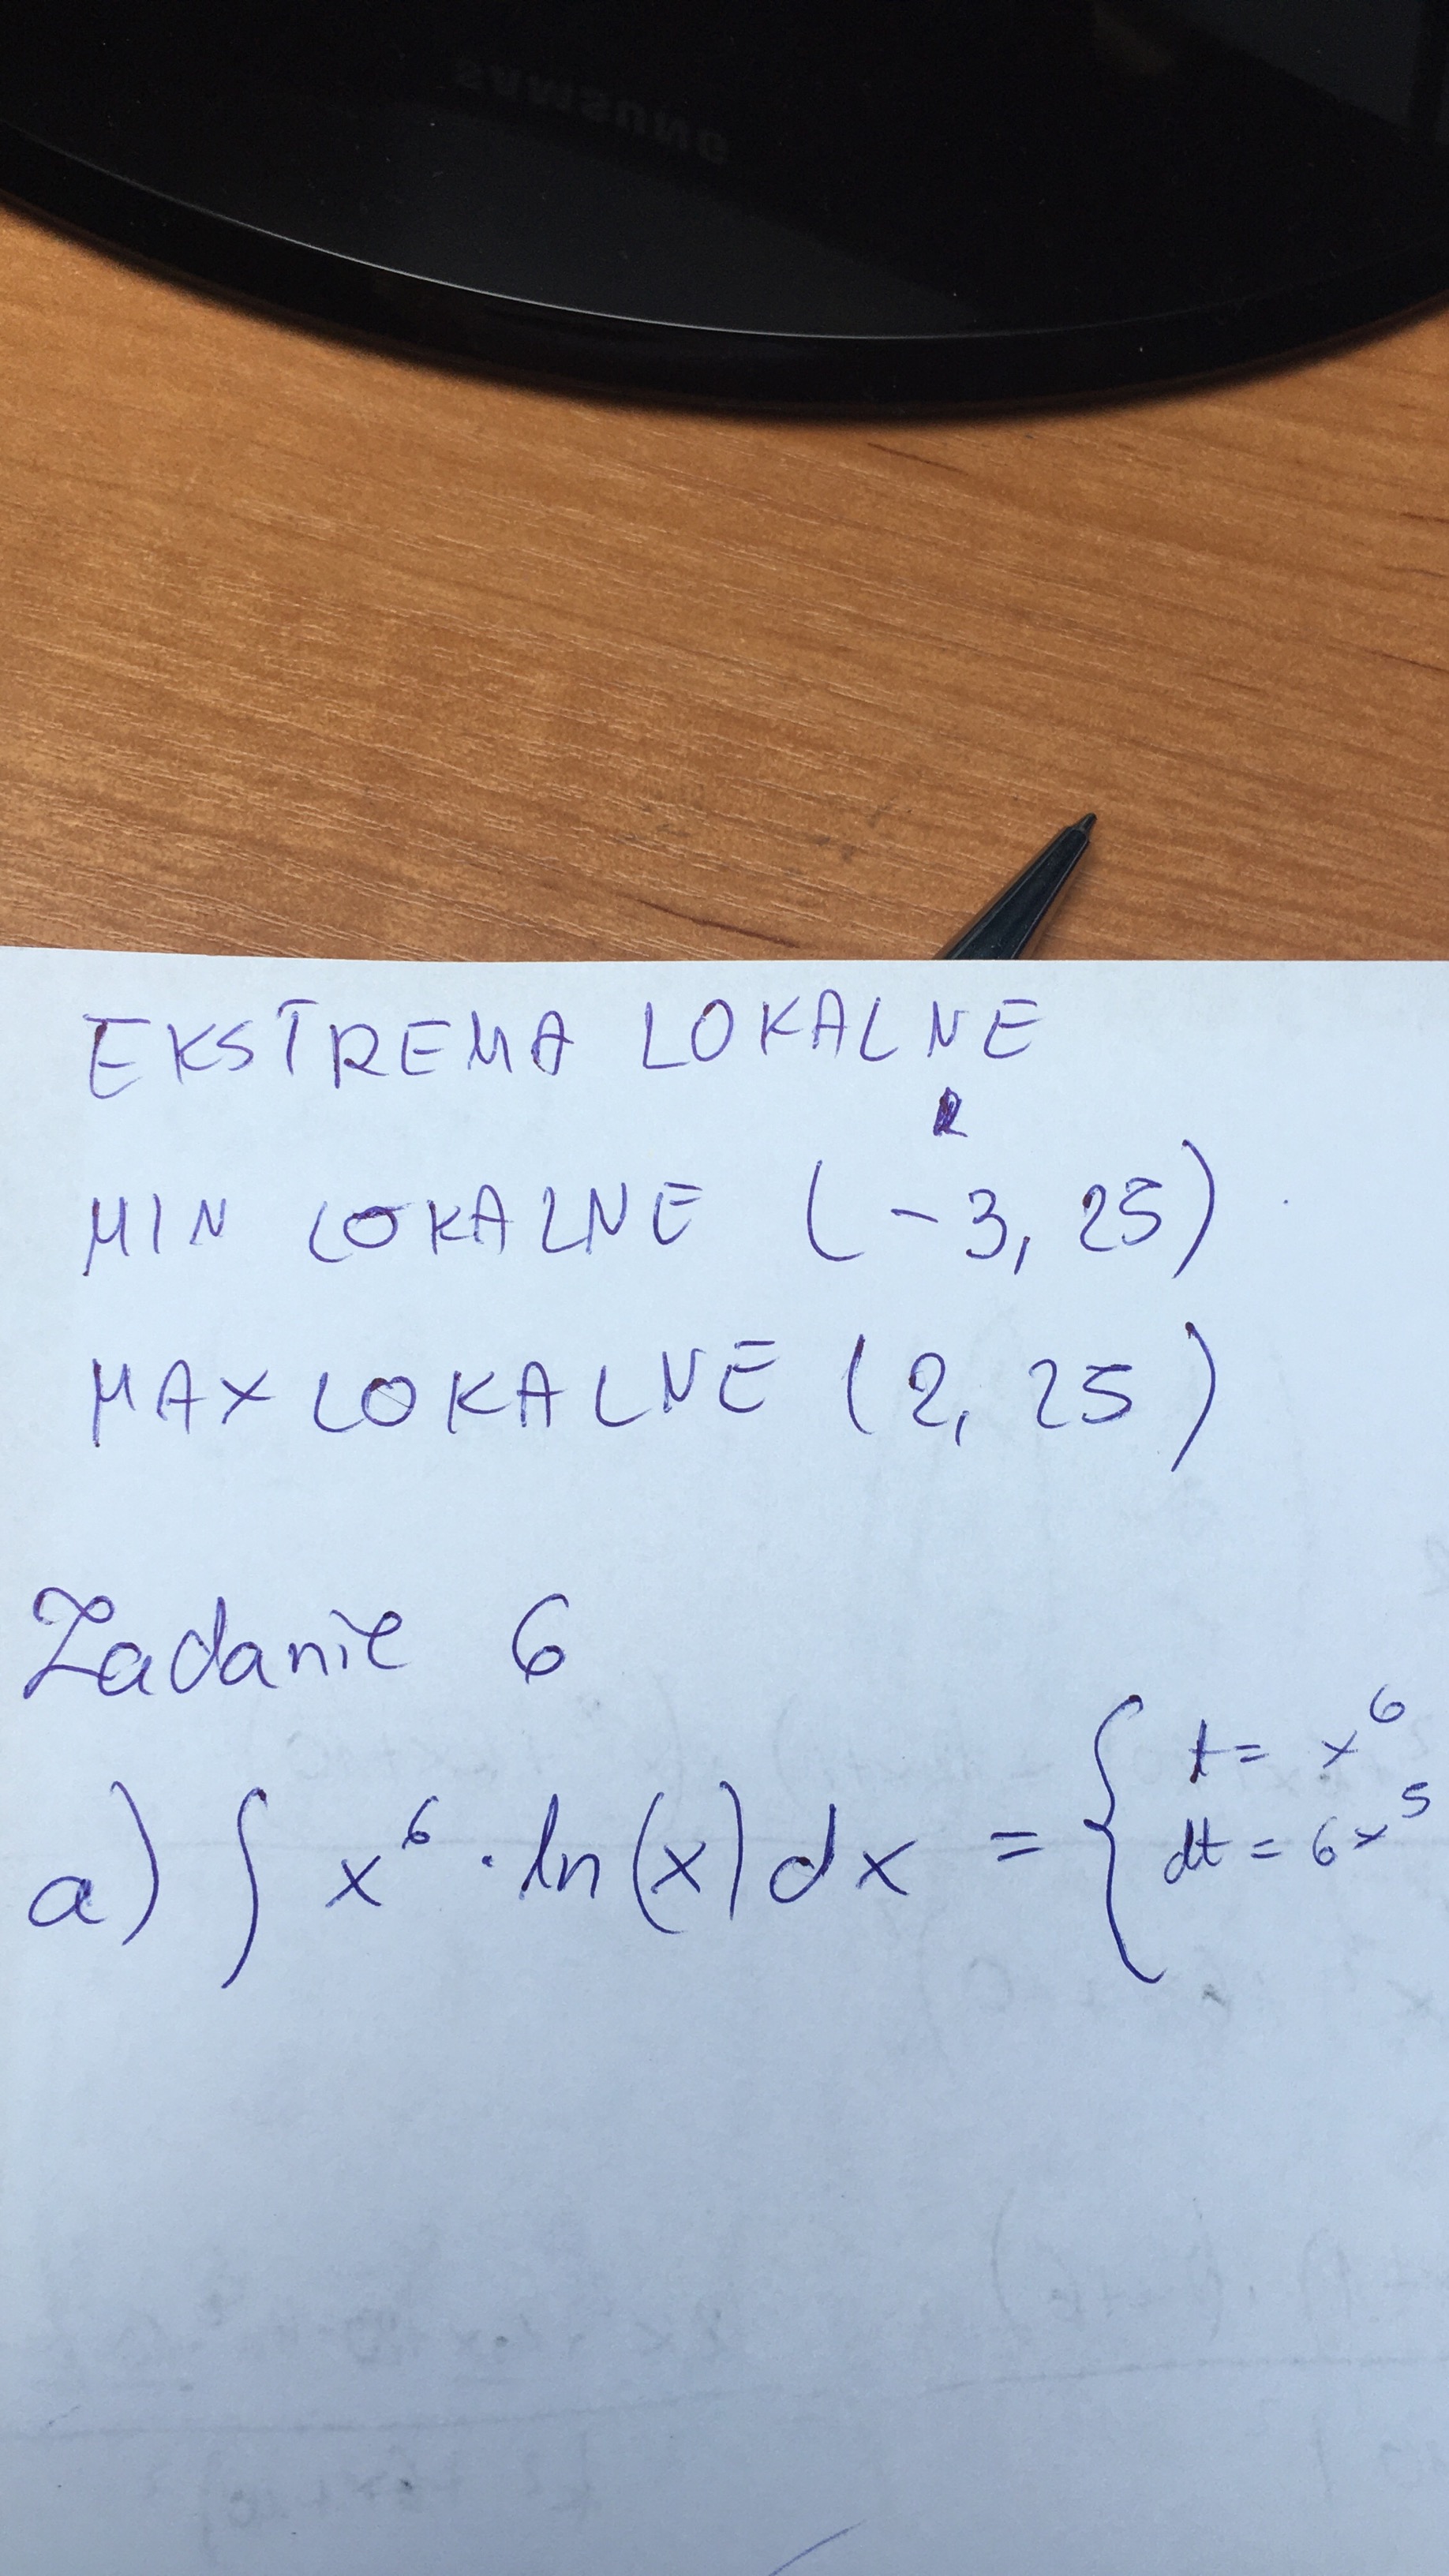 SAMSUNG
EKSTREMA LOKALNE
MIN LOKALNE (-3, 25)
MAX LOKALNE (2, 25)
Zadanie 6
a) ∫ x⁶ · ln(x) dx = { t = x⁶
dt = 6x⁵